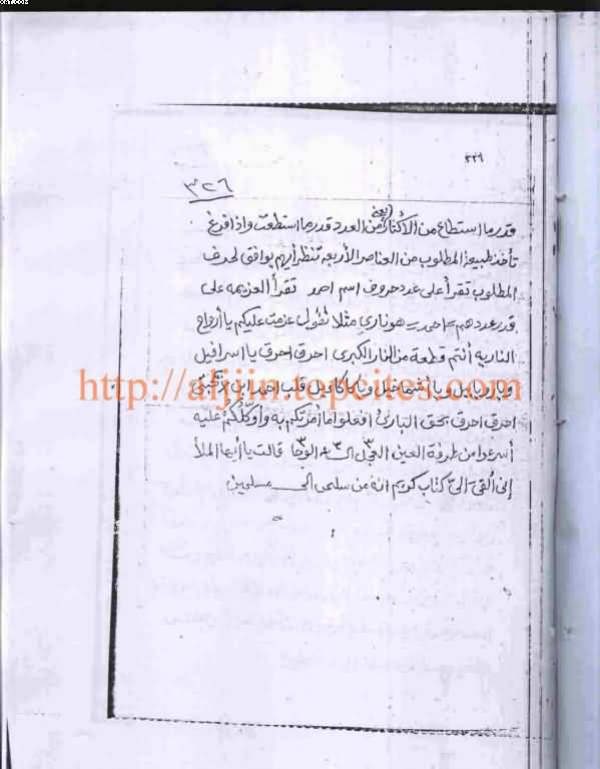 ٣٢٦
٣٢٦
قدر ما استطاع من الأكثار يعني من العدد قدر ما استطعت واذا فرغ
تأخذ طبيعة المطلوب من العناصر الأربعه تنظر أيهم يوافق لحرف
المطلوب تقرأ على عدد حروف اسم احمد تقرأ العزيمه على
قدر عددهم احمد هو ناري مثلا تقول عزمت عليكم يا أرواح
الناريه أنتم قطعة من النار الكبرى احرق احرق يا اسرافيل
قلب احمد ابن
احرق احرق بحق البارئ افعلوا ما أمرتكم به وأوكلكم عليه
أسرعوا من طرفة العين العجل ٣ الوحا ٣ قالت يا أيها الملأ
إني ألقي إليّ كتاب كريم انه من سليمن الى مسلمين
http://aljjin.topcites.com